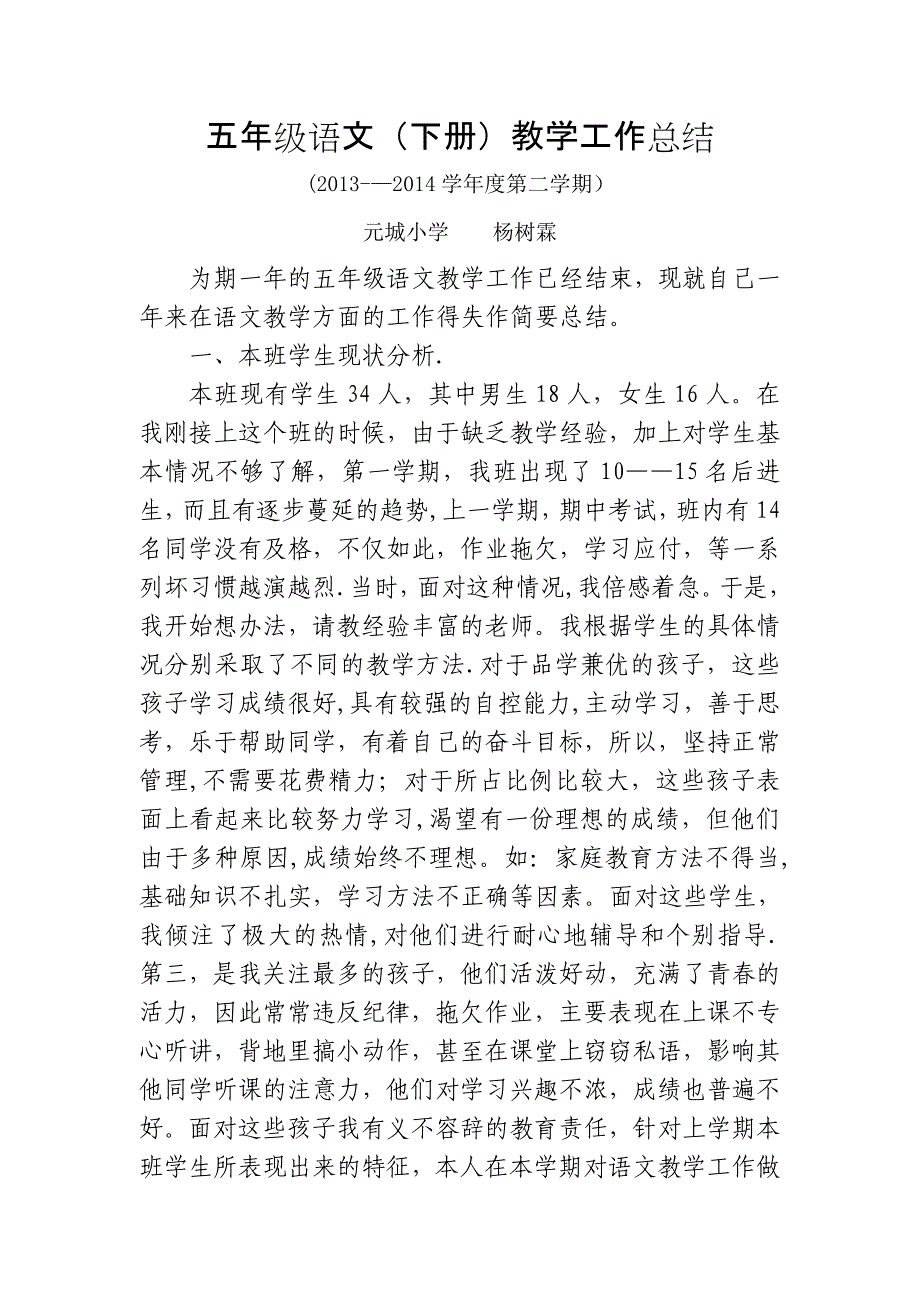 五年级语文（下册）教学工作总结
(2013-—2014 学年度第二学期）
元城小学　　杨树霖
为期一年的五年级语文教学工作已经结束，现就自己一
年来在语文教学方面的工作得失作简要总结。
一、本班学生现状分析.
本班现有学生 34 人，其中男生 18 人，女生 16 人。在
我刚接上这个班的时候，由于缺乏教学经验，加上对学生基
本情况不够了解，第一学期，我班出现了 10——15 名后进
生，而且有逐步蔓延的趋势,上一学期，期中考试，班内有 14
名同学没有及格，不仅如此，作业拖欠，学习应付，等一系
列坏习惯越演越烈.当时，面对这种情况,我倍感着急。于是，
我开始想办法，请教经验丰富的老师。我根据学生的具体情
况分别采取了不同的教学方法.对于品学兼优的孩子，这些
孩子学习成绩很好,具有较强的自控能力,主动学习，善于思
考，乐于帮助同学，有着自己的奋斗目标，所以，坚持正常
管理,不需要花费精力；对于所占比例比较大，这些孩子表
面上看起来比较努力学习,渴望有一份理想的成绩，但他们
由于多种原因,成绩始终不理想。如：家庭教育方法不得当,
基础知识不扎实，学习方法不正确等因素。面对这些学生，
我倾注了极大的热情,对他们进行耐心地辅导和个别指导.
第三，是我关注最多的孩子，他们活泼好动，充满了青春的
活力，因此常常违反纪律，拖欠作业，主要表现在上课不专
心听讲，背地里搞小动作，甚至在课堂上窃窃私语，影响其
他同学听课的注意力，他们对学习兴趣不浓，成绩也普遍不
好。面对这些孩子我有义不容辞的教育责任，针对上学期本
班学生所表现出来的特征，本人在本学期对语文教学工作做